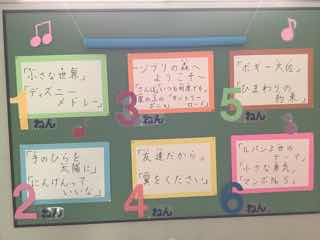 「小さな世界」
「ディズニー
メドレー」
1ねん
「手のひらを
太陽に」
「にんげんって
いいな」
2ねん
~ジブリの森へ
ようこそ~
「さんぽ」「いつも何度でも」
「崖の上の
ポニョ」
「カントリー
ロード」
3ねん
「友達だから」
「愛をください」
4ねん
「ボギー大佐」
「ひまわりの
約束」
5ねん
「ルパン三世の
テーマ」
「小さな勇気」
「マンボNo.5」
6ねん